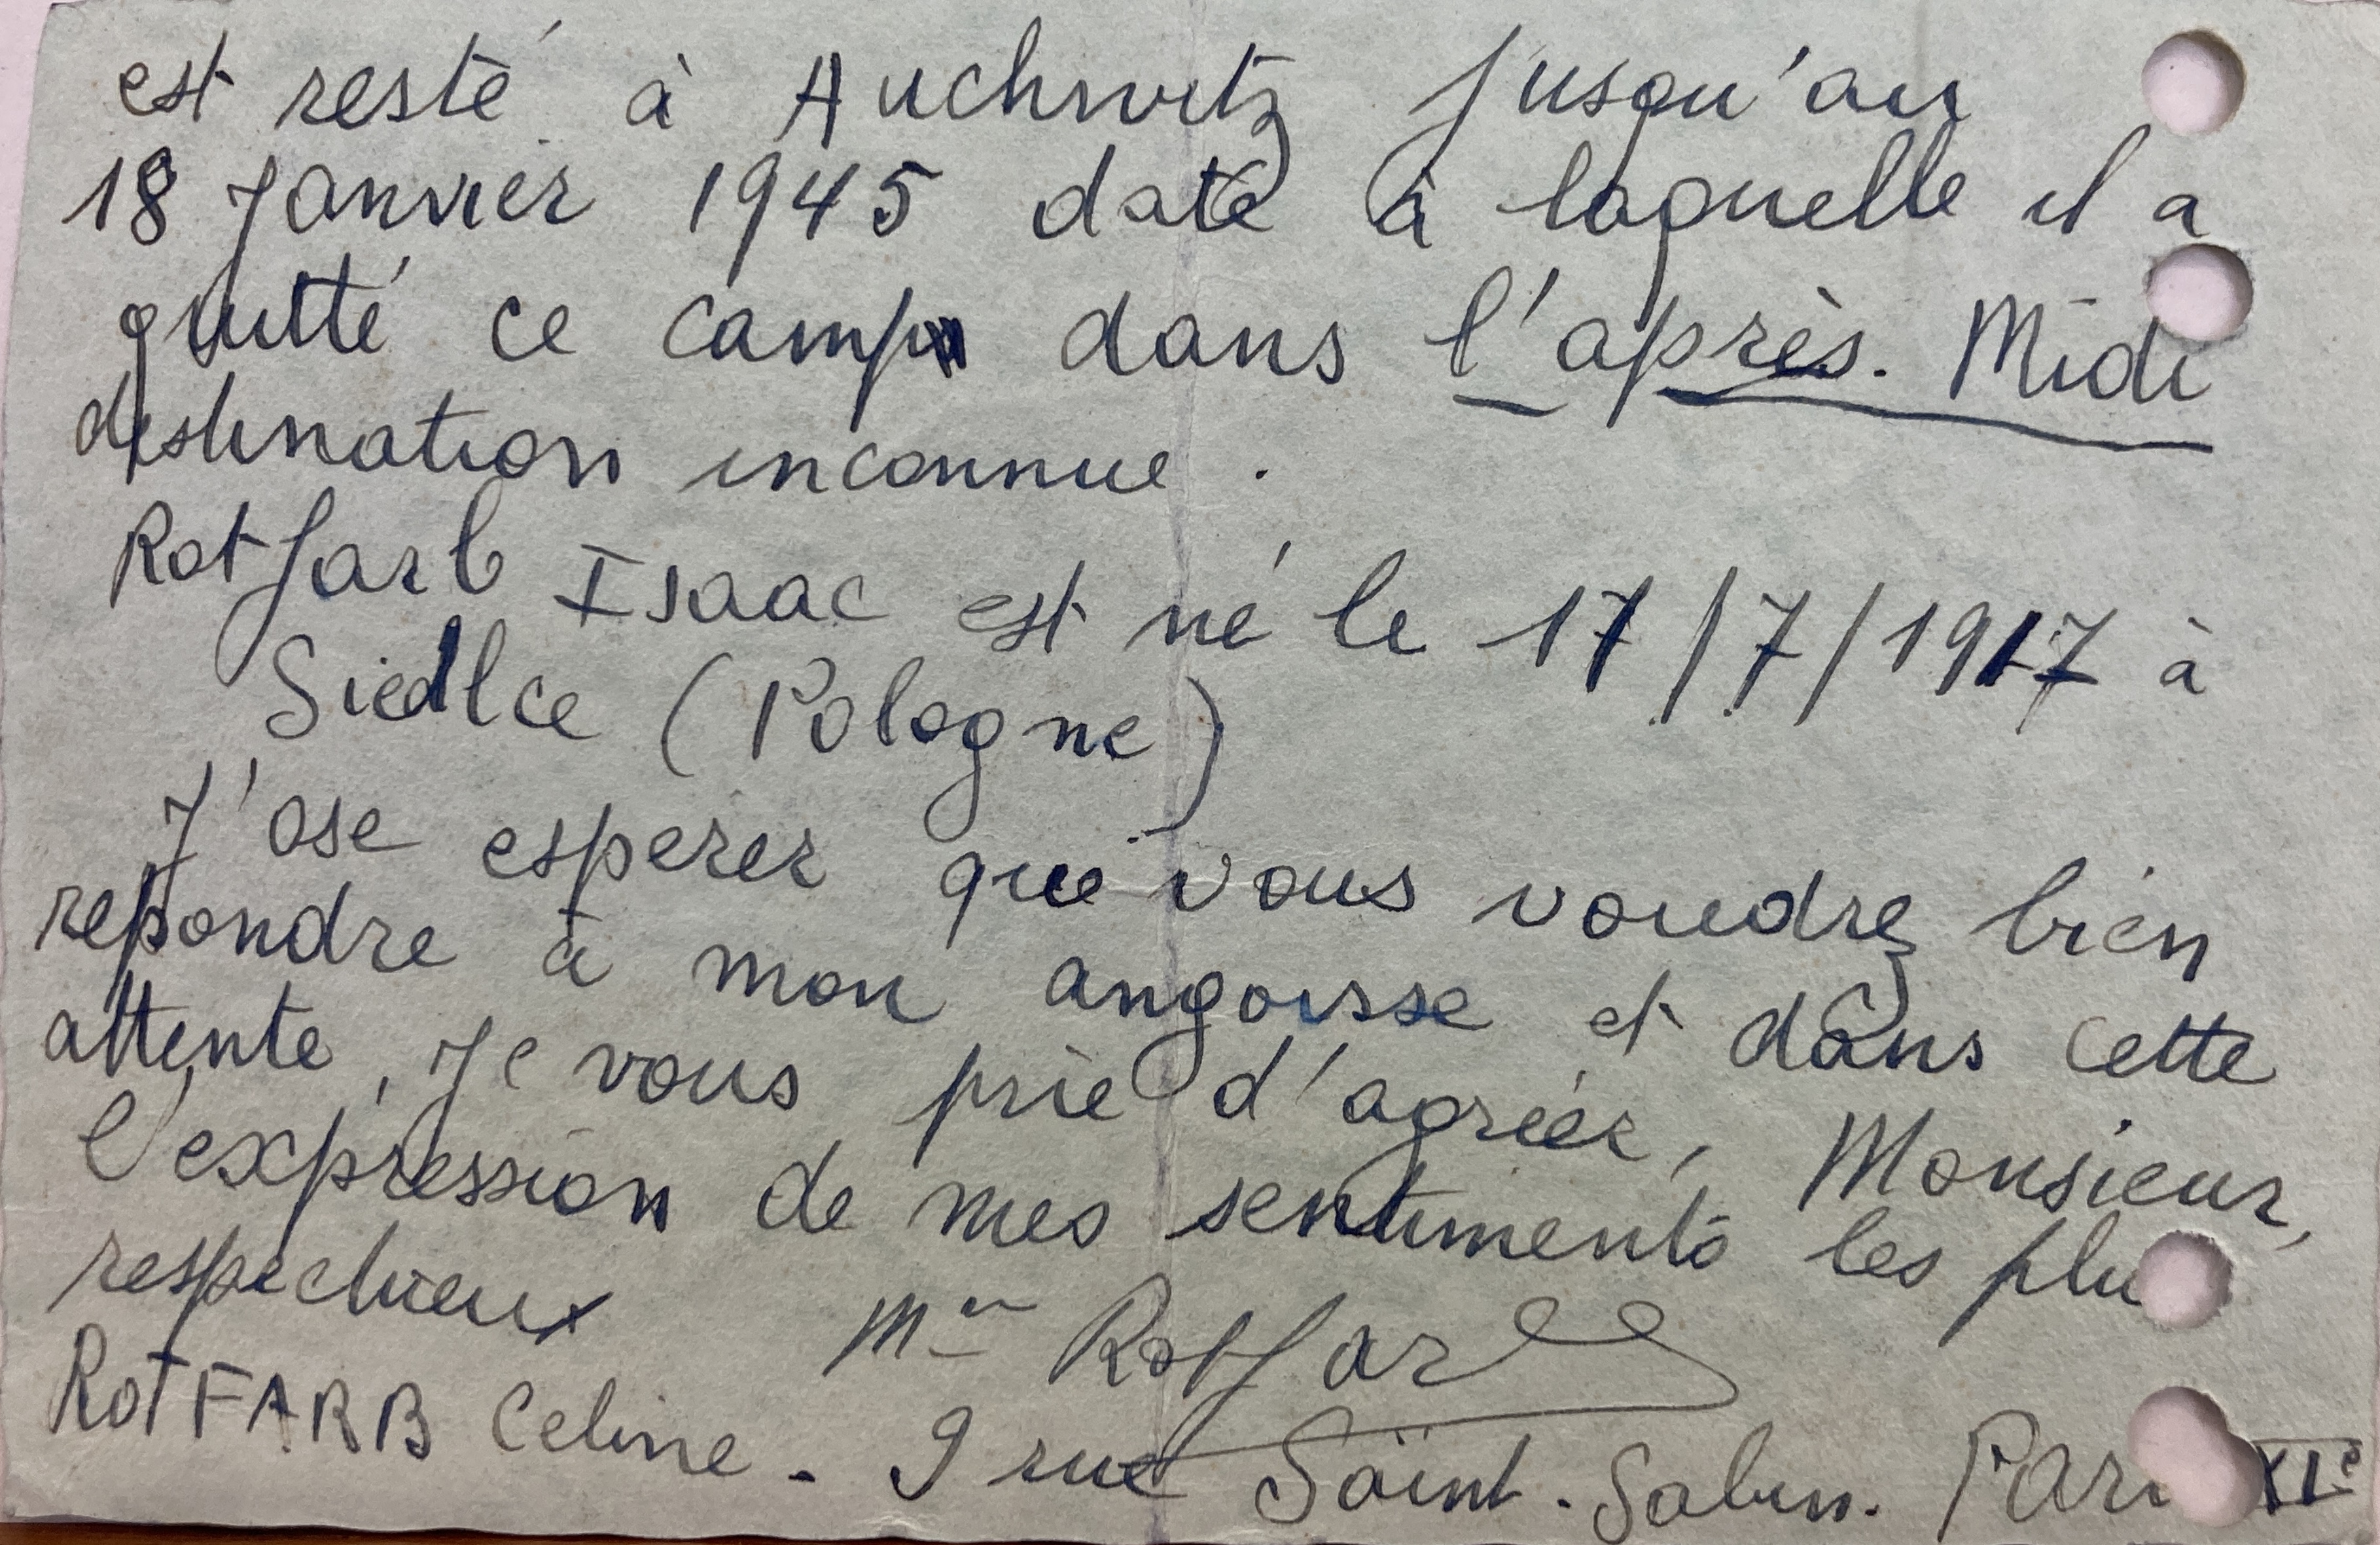 est resté à Auchwitz jusqu'au
18 Janvier 1945 date à laquelle il a
quitté ce camp dans l'après. Midi
destination inconnue.
Rotfarb Isaac est né le 17/7/1917 à
Siedlce (Pologne)
J'ose esperer que vous voudrez bien
repondre à mon angoisse et dans cette
attente, je vous prie d'agréer, Monsieur,
l'expression de mes sentiments les plu
respectueux Mme Rotfarb
RotFARB Celine - 9 rue Saint-Sabin. Pari XIe